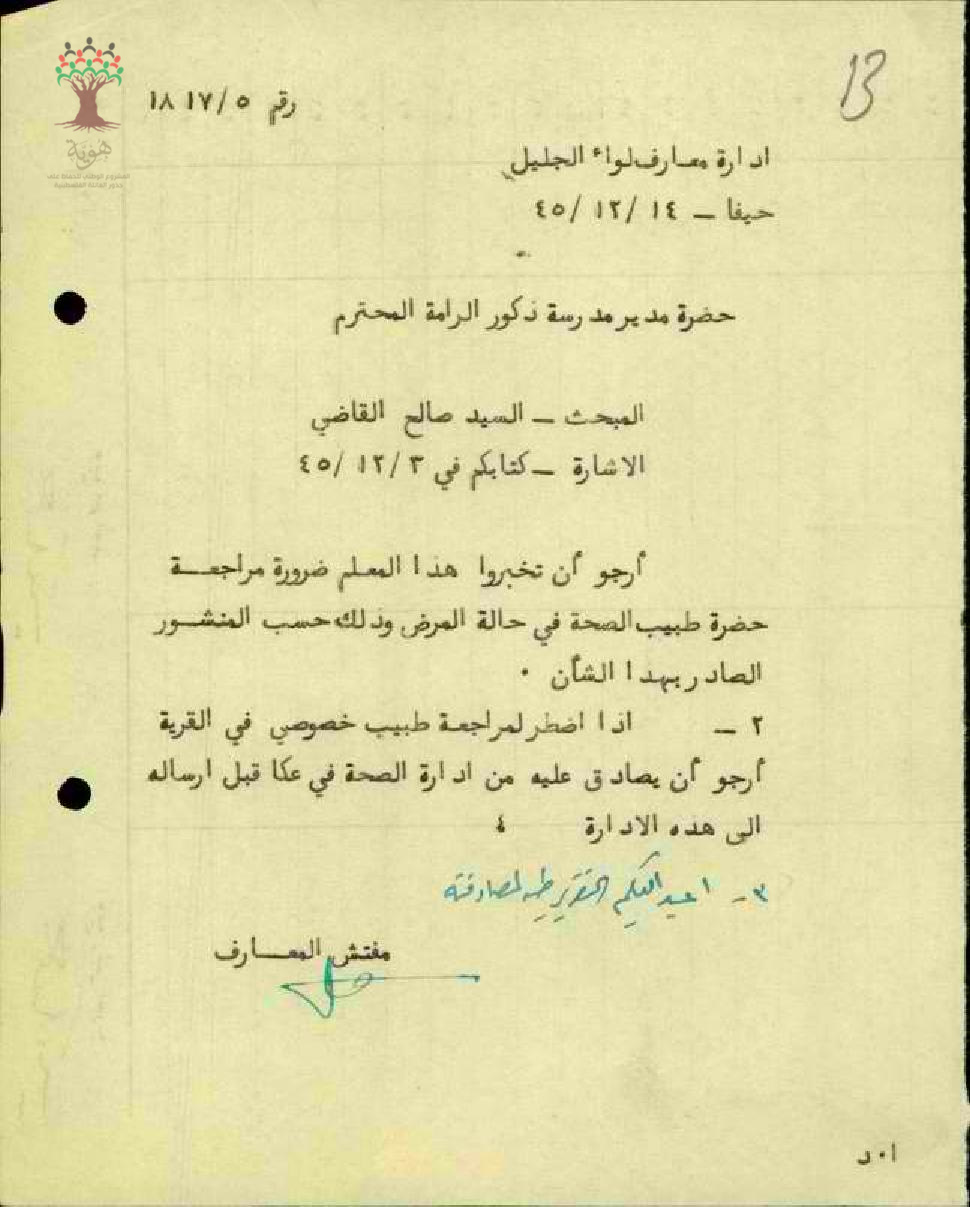 13
رقم ٥/١٧ ١٨
هوية
المشروع الوطني للحفاظ على
جذور العائلة الفلسطينية
ادارة معارف لواء الجليل
حيفا – ١٤ /١٢ /٤٥
حضرة مدير مدرسة ذكور الرامة المحترم
المبحث – السيد صالح القاضي
الاشارة – كتابكم في ٣ /١٢ /٤٥
أرجو أن تخبروا هذا المعلم ضرورة مراجعــة
حضرة طبيب الصحة في حالة المرض وذلك حسب المنشــور
الصادر بهذا الشأن ٠
٢ – اذا اضطر لمراجعة طبيب خصوصي في القرية
أرجو أن يصادق عليه من ادارة الصحة في عكا قبل ارساله
الى هذه الادارة ٤
٣ - اعيد اليكم التقرير طيه لمصادقته
مفتش المعــارف
ا٠د